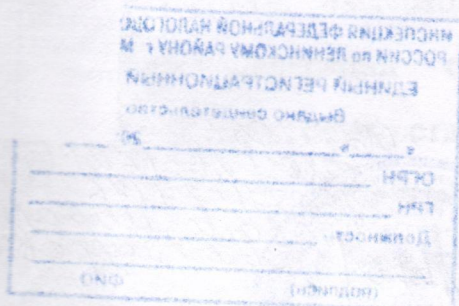 ИНСПЕКЦИЯ ФЕДЕРАЛЬНОЙ НАЛОГОВ
РОССИИ по ЛЕНИНСКОМУ РАЙОНУ г. М
ЕДИНЫЙ РЕГИСТРАЦИОННЫЙ
Выдано свидетельство
« » 20
ОГРН
ГРН
Должность
(подпись) (ФИО)